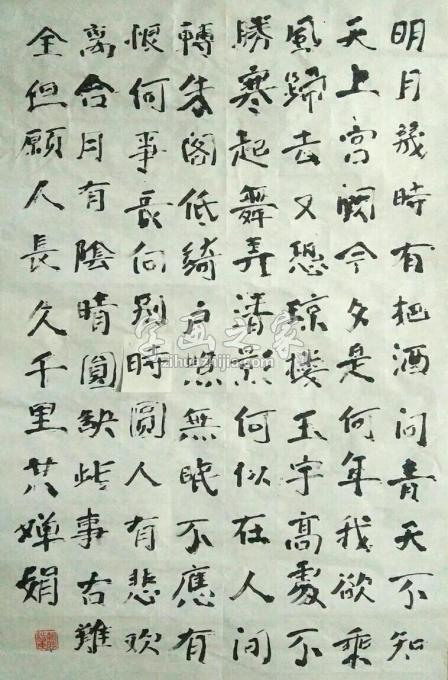 明月幾時有把酒问青天不知
天上宫阙今夕是何年我欲乘
風歸去又恐琼楼玉宇高處不
勝寒起舞弄清影何似在人间
轉朱阁低綺户照無眠不應有
恨何事長向别時圓人有悲欢
离合月有陰晴圓缺此事古難
全但願人長久千里共婵娟
字画之家
zihuazhijia.com